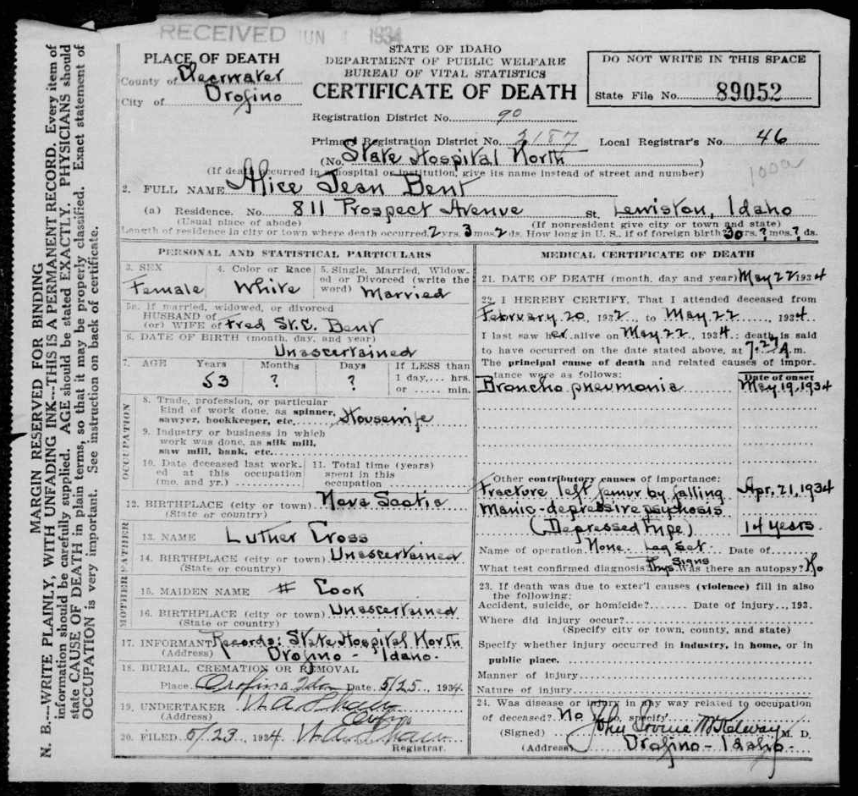 RECEIVED JUN 1934
MARGIN RESERVED FOR BINDING.
N. B.---WRITE PLAINLY, WITH UNFADING INK---THIS IS A PERMANENT RECORD. Every item of
information should be carefully supplied. AGE should be stated EXACTLY. PHYSICIANS should
state CAUSE OF DEATH in plain terms, so that it may be properly classified. Exact statement of
OCCUPATION is very important. See instruction on back of certificate.
PLACE OF DEATH
County of Clearwater
City of Orofino
STATE OF IDAHO
DEPARTMENT OF PUBLIC WELFARE
BUREAU OF VITAL STATISTICS
CERTIFICATE OF DEATH
DO NOT WRITE IN THIS SPACE
State File No. 89052
Registration District No. 90
Primary Registration District No. 2187 Local Registrar's No. 46
(No. State Hospital North )
(If death occurred in a hospital or institution, give its name instead of street and number)
100a
2. FULL NAME Alice Jean Bent
(a) Residence. No. 811 Prospect Avenue St. Lewiston, Idaho
(Usual place of abode) (If nonresident give city or town and state)
Length of residence in city or town where death occurred 2 yrs. 3 mos. 2 ds. How long in U. S., if of foreign birth 30 yrs. ? mos. ? ds.
PERSONAL AND STATISTICAL PARTICULARS
3. SEX Female
4. Color or Race White
5. Single, Married, Widowed or Divorced (write the word) Married
5a. If married, widowed, or divorced
HUSBAND of
(or) WIFE of Fred St.C. Bent
6. DATE OF BIRTH (month, day, and year)
Unascertained
7. AGE Years Months Days If LESS than
53 ? ? 1 day, ... hrs.
or ... min.
OCCUPATION
8. Trade, profession, or particular
kind of work done, as spinner,
sawyer, bookkeeper, etc. Housewife
9. Industry or business in which
work was done, as silk mill,
saw mill, bank, etc.
10. Date deceased last worked at this occupation (mo. and yr.)
11. Total time (years) spent in this occupation
12. BIRTHPLACE (city or town) Nova Scotia
(State or country)
FATHER
13. NAME Luther Cross
14. BIRTHPLACE (city or town) Unascertained
(State or country)
MOTHER
15. MAIDEN NAME # Cook
16. BIRTHPLACE (city or town) Unascertained
(State or country)
17. INFORMANT Records: State Hospital North
(Address) Orofino - Idaho.
18. BURIAL, CREMATION OR REMOVAL
Place Orofino Idaho Date 5/25, 1934
19. UNDERTAKER
(Address) Orofino
20. FILED 5/23, 1934
Registrar.
MEDICAL CERTIFICATE OF DEATH
21. DATE OF DEATH (month, day and year) May 22 1934
22. I HEREBY CERTIFY, That I attended deceased from
February 20, 1932, to May 22, 1934.
I last saw her alive on May 22, 1934; death is said
to have occurred on the date stated above, at 7:27 A m.
The principal cause of death and related causes of importance were as follows: Date of onset
Broncho pneumonia May 19, 1934
Other contributory causes of importance:
Fracture left femur by falling Apr. 21, 1934
Manic-depressive psychosis
(Depressed type) 14 years.
Name of operation None. Leg set Date of
What test confirmed diagnosis? Phys. Signs Was there an autopsy? No
23. If death was due to exter'l causes (violence) fill in also
the following:
Accident, suicide, or homicide? Date of injury, 193.
Where did injury occur?
(Specify city or town, county, and state)
Specify whether injury occurred in industry, in home, or in
public place.
Manner of injury
Nature of injury
24. Was disease or injury in any way related to occupation
of deceased? No If so, specify
(Signed) John Irvine McKelway M. D.
(Address) Orofino - Idaho.